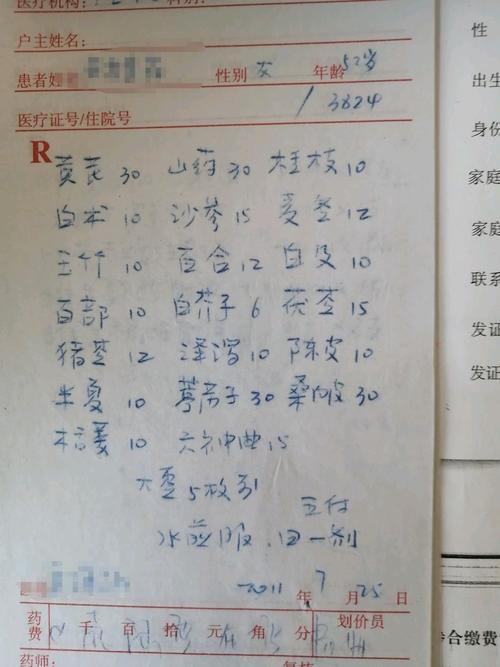 医疗机构: 科别:
户主姓名:
患者姓 性别 女 年龄 52岁
医疗证号/住院号 / 3824
R
黄芪 30 山药 30 桂枝 10
白术 10 沙参 15 麦冬 12
玉竹 10 百合 12 白及 10
百部 10 白芥子 6 茯苓 15
猪苓 12 泽泻 10 陈皮 10
半夏 10 葶苈子 30 桑皮 30
10 六神曲 15
大枣 5枚引
五付
水煎服. 日一剂
2011 年 7 月 25 日
药费 千 百 拾 元 角 分 划价员
药师: 复核
性
出生
身份
家庭
家庭
联系
发证
发证
合缴费